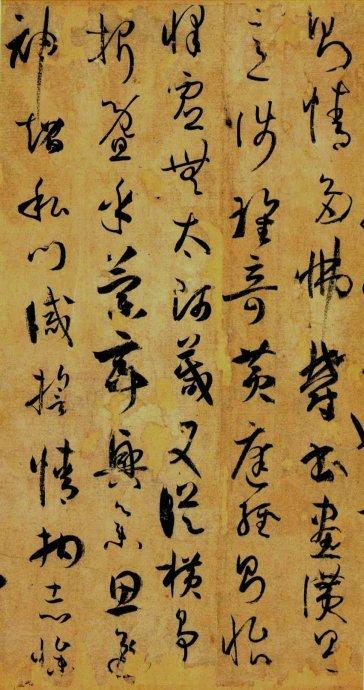 則情多怫鬱書畫讚則
意涉瓌奇黃庭經則怡
懌虛無太師箴又從橫爭
折暨乎蘭亭興集思逸
神超私門誡誓情拘志慘